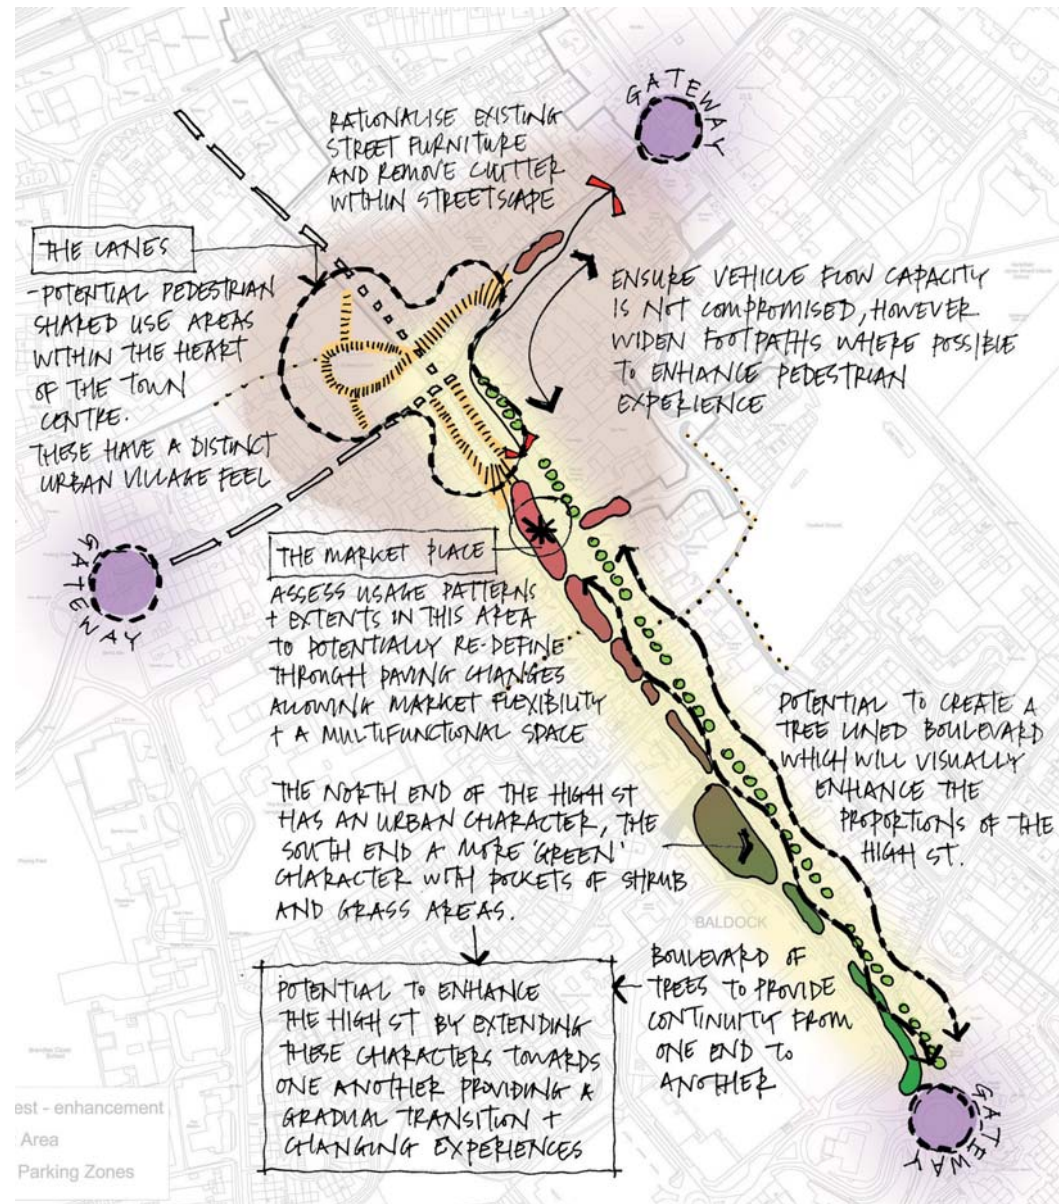 GATEWAY
RATIONALISE EXISTING
STREET FURNITURE
AND REMOVE CLUTTER
WITHIN STREETSCAPE
THE LANES
- POTENTIAL PEDESTRIAN
SHARED USE AREAS
WITHIN THE HEART
OF THE TOWN
CENTRE.
THESE HAVE A DISTINCT
URBAN VILLAGE FEEL
ENSURE VEHICLE FLOW CAPACITY
IS NOT COMPROMISED, HOWEVER
WIDEN FOOTPATHS WHERE POSSIBLE
TO ENHANCE PEDESTRIAN
EXPERIENCE
GATEWAY
THE MARKET PLACE
ASSESS USAGE PATTERNS
+ EXTENTS IN THIS AREA
TO POTENTIALLY RE-DEFINE
THROUGH PAVING CHANGES
ALLOWING MARKET FLEXIBILITY
+ A MULTIFUNCTIONAL SPACE
POTENTIAL TO CREATE A
TREE LINED BOULEVARD
WHICH WILL VISUALLY
ENHANCE THE
PROPORTIONS OF THE
HIGH ST.
THE NORTH END OF THE HIGH ST
HAS AN URBAN CHARACTER, THE
SOUTH END A MORE 'GREEN'
CHARACTER WITH POCKETS OF SHRUB
AND GRASS AREAS.
BALDOCK
BOULEVARD OF
TREES TO PROVIDE
CONTINUITY FROM
ONE END TO
ANOTHER
POTENTIAL TO ENHANCE
THE HIGH ST BY EXTENDING
THESE CHARACTERS TOWARDS
ONE ANOTHER PROVIDING A
GRADUAL TRANSITION +
CHANGING EXPERIENCES
GATEWAY
est - enhancement
Area
Parking Zones